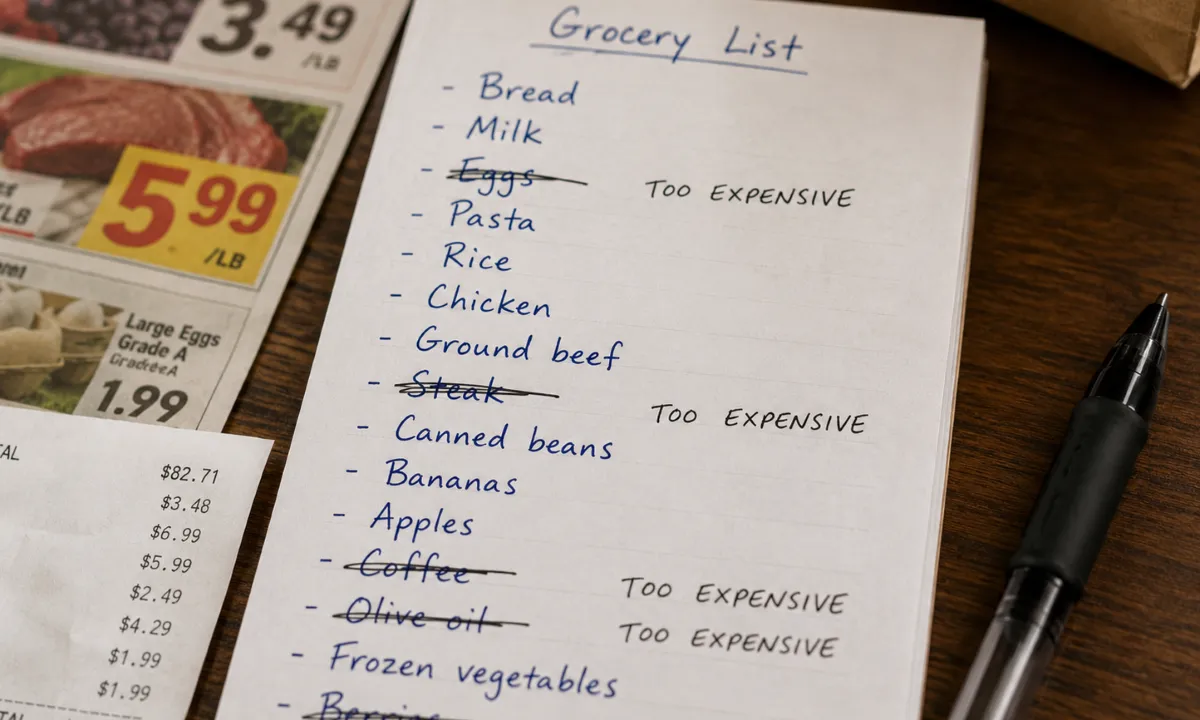 3.49
/LB
5.99
/LB
/LB
Large Eggs
Grade A
Grade A
1.99
$82.71
$3.48
$6.99
$5.99
$2.49
$4.29
$1.99
$1.99
Grocery List
- Bread
- Milk
- Eggs TOO EXPENSIVE
- Pasta
- Rice
- Chicken
- Ground beef
- Steak TOO EXPENSIVE
- Canned beans
- Bananas
- Apples
- Coffee TOO EXPENSIVE
- Olive oil TOO EXPENSIVE
- Frozen vegetables
- Berries